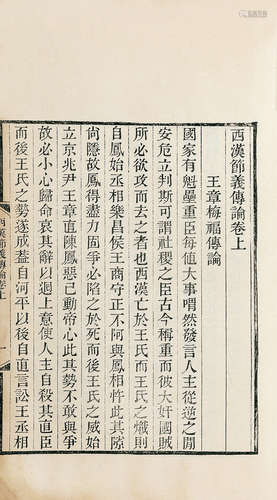 西漢節義傳論卷上
王章梅福傳論
國家有魁壘重臣每値大事喟然發言人主從違之閒
安危立判斯可謂社稷之臣古今稱重而彼大奸國賊
所必欲攻而去之者也西漢亡於王氏而王氏之熾則
自鳳始丞相樂昌侯王商守正不阿與鳳相忤此其隙
尙隱故鳳得盡力固爭必陷之於死而後王氏之威始
立京兆尹王章直陳鳳惡已動帝心此其勢不敢與爭
故必小心歸命哀其辭以迴上意使人主自殺其直臣
而後王氏之勢遂成蓋自河平以後自直言訟王丞相
西漢節義傳論卷上
一